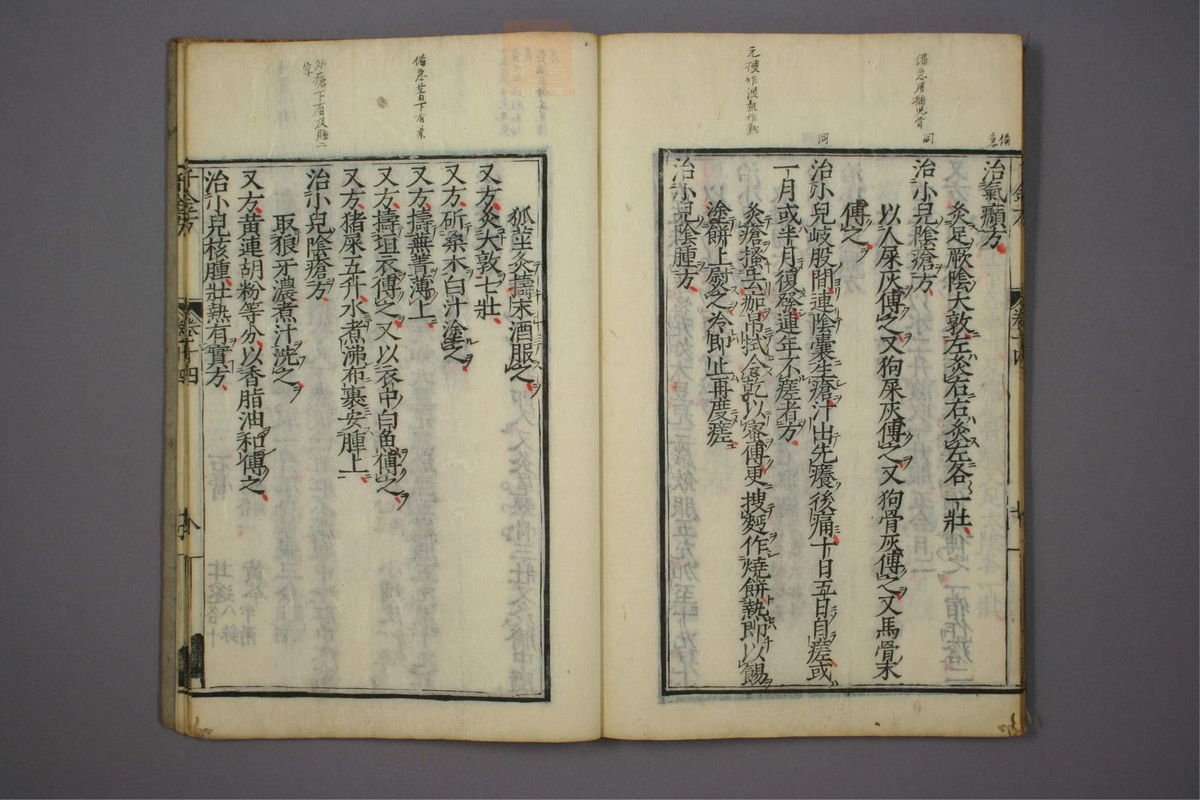 治氣㿗方
灸足厥陰大敦左灸右右灸左各一壯
治小兒陰瘡方
以人屎灰傅之又狗屎灰傅之又狗骨灰傅之又馬骨末
傅之
治小兒岐股間連陰囊生瘡汁出先癢後痛十日五日自瘥或
一月或半月復發連年不瘥者方
灸瘡搔去痂帛拭令乾以蜜傅更搜麪作燒餅熱即以餳
塗餅上熨之冷即止再度瘥
治小兒陰腫方
狐莖灸擣末酒服之
又方灸大敦七壯
又方斫桑木白汁塗之
又方擣蕪菁薄上
又方擣垣衣傅之又以衣中白魚傅之
又方猪屎五升水煮沸布裹安腫上
治小兒陰瘡方
取狼牙濃煮汁洗之
又方黃連胡粉等分以香脂油和傅之
治小兒核腫壯熱有實方
千金方
卷十四
備急
同
同
備急昔下有菜